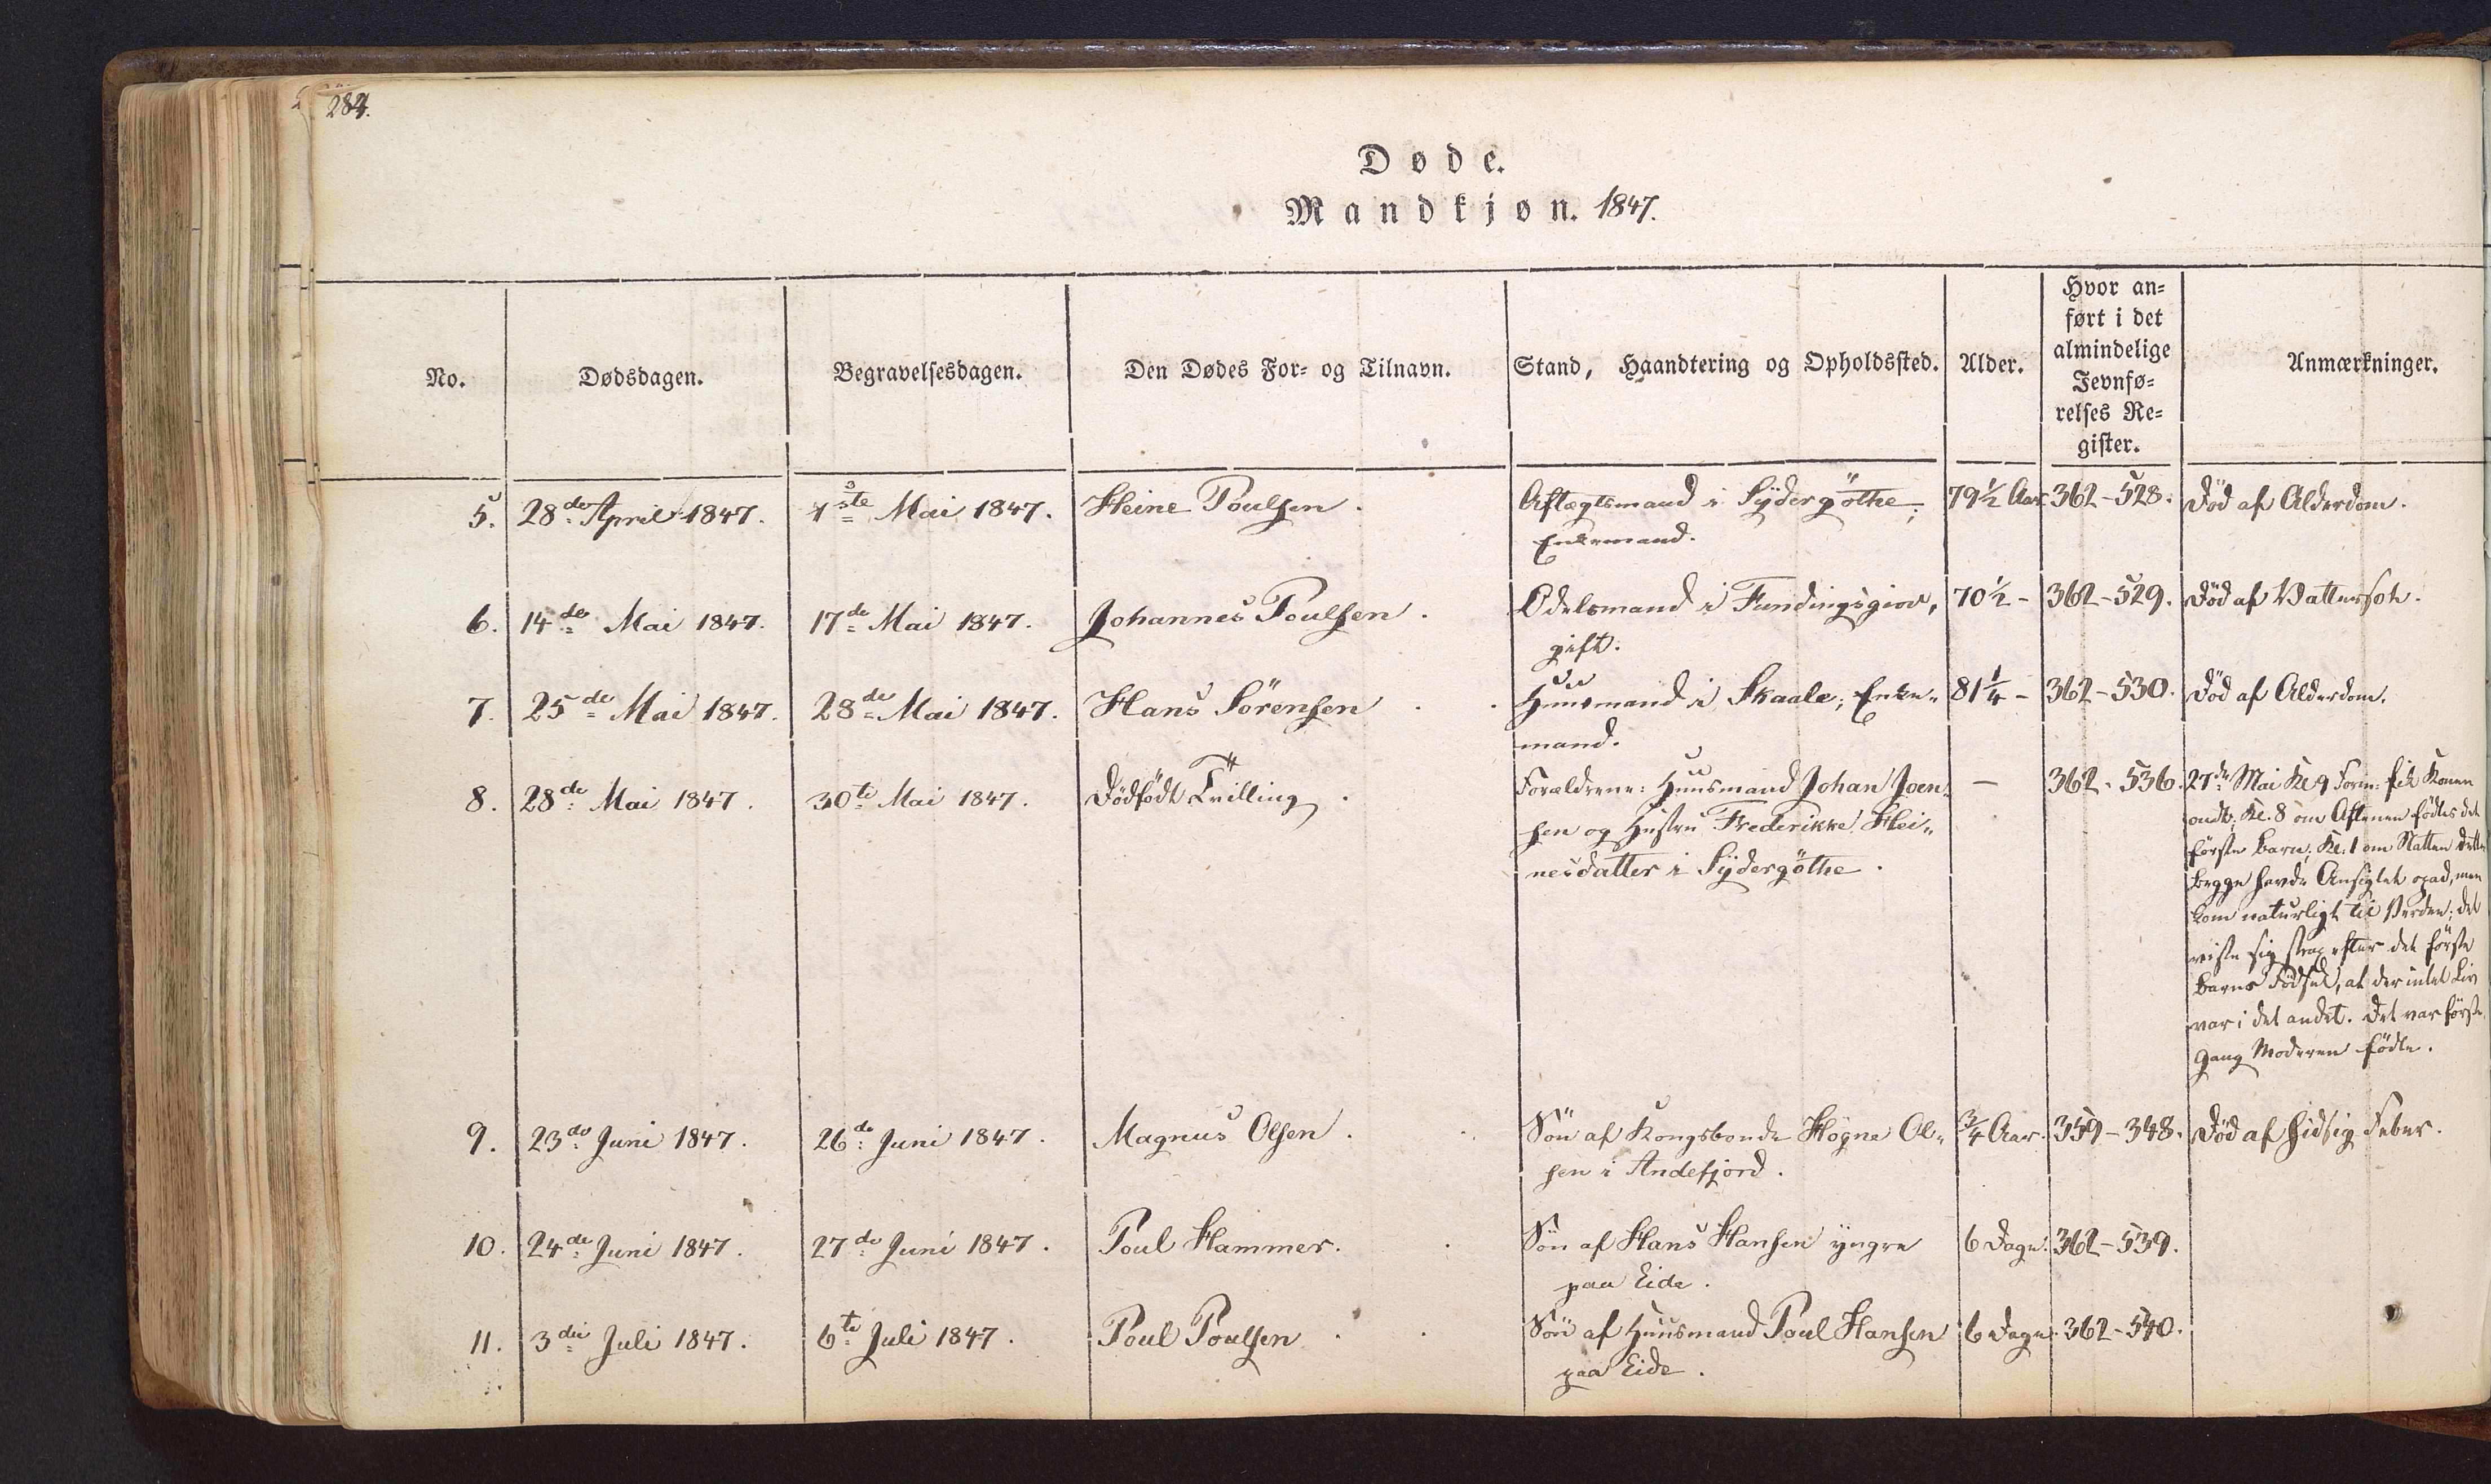 284.
Døde.
Mandkjøn. 1847.
No.
Dødsdagen.
Begravelsesdagen.
Den Dødes For- og Tilnavn.
Stand, Haandtering og Opholdssted.
Alder.
Hvor an-
ført i det
almindelige
Jevnfø-
relses Re-
gister.
Anmærkninger.
5. 28de April 1847. 1ste Mai 1847. Heine Poulsen. Aftægtsmand i Sydergöthe; 79½ Aar 362-528. Död af Alderdom.
Enkemand.
6. 14de Mai 1847. 17de Mai 1847. Johannes Poulsen. Odelsmand i Fundingsgiov, 70½ - 362-529. Död af Vattersot.
gift.
7. 25de Mai 1847. 28de Mai 1847. Hans Sörensen Huusmand i Skaale; Enke- 81¼ - 362-530. Död af Alderdom.
mand.
8. 28de Mai 1847. 30te Mai 1847. Dödfödt Tvilling. Forældrene: Huusmand Johan Joen- — 362-536. 27de Mai Kl. 9 Form: fik Konen
sen og Hustru Frederikke Hei-
nesdatter i Sydergöthe.
ondt; Kl. 8 om Aftenen födtes det
förste Barn; Kl. 1 om Natten dette
begge havde Ansigtet opad, men
kom naturligt til Verden; det
viste sig strax efter det förste
Barns Födsel, at der intet Liv
var i det andet. Det var förste
Gang Moderen födte.
9. 23de Juni 1847. 26de Juni 1847. Magnus Olsen. Sön af Kongsbonde Högne Ol- ¾ Aar. 359-348. Död af hidsig Feber.
sen i Andefjord.
10. 24de Juni 1847. 27de Juni 1847. Poul Hammer. Sön af Hans Hansen yngre 6 Dage. 362-539.
paa Eide.
11. 3die Juli 1847. 6te Juli 1847. Poul Poulsen Sön af Huusmand Poul Hansen 6 Dage. 362-540.
paa Eide.